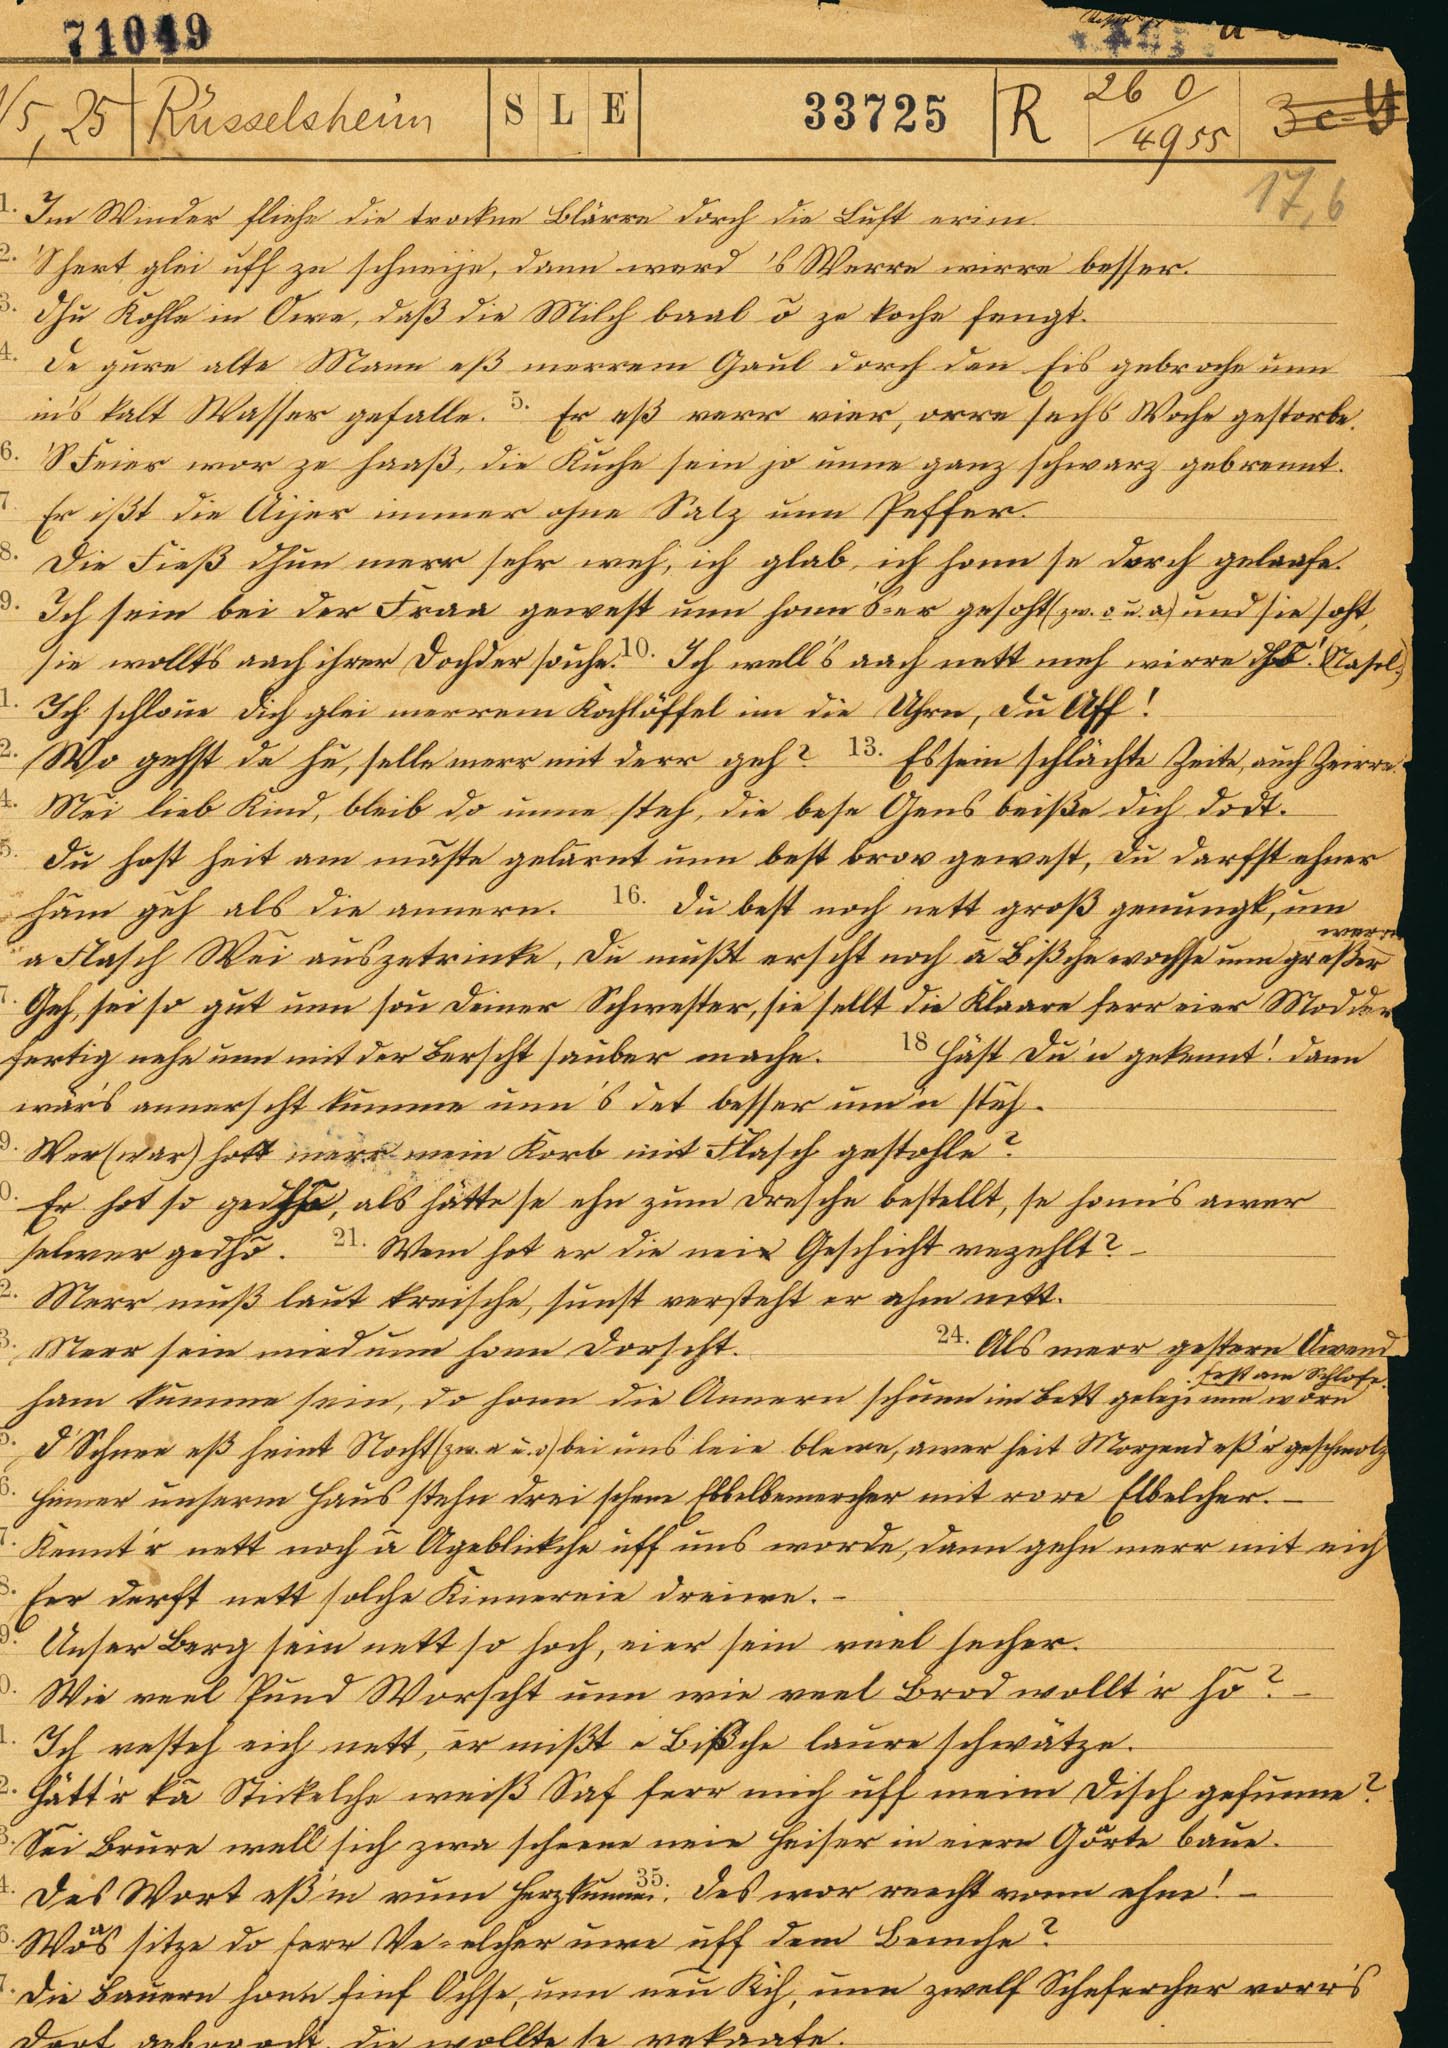 71049
V5, 25 Rüsselsheim S L E 33725 R 26 0/4955 3 c y
17,6
1. Im Winder fliehe die trockne Blärre dorch die Luft erim.
2. 'S hert glei uff ze schneije, dann werd 's Werre wirre besser.
3. Dhu Kohle in Owe, daß die Milch baal ō ze koche fengt.
4. De gure alte Mann eß merrem Gaul dorch den Eis gebroche unn
in's kalt Wasser gefalle. 5. Er eß verr vier, orre sechs Woche gestorbe.
6. 'S Feier wor ze haaß, die Kuche sein jo unne ganz schwarz gebrennt.
7. Er ißt die Aijer immer ohne Salz unn Peffer.
8. Die Fieß dhun merr sehr weh, ich glab, ich honn se dorch gelaafe.
9. Ich sein bei der Fraa gewest unn honn 's=er gesoht (zw. o u. a) und sie soht,
sie wollt's aach ihrer Dochder souhe. 10. Ich well's aach nett meh wirre dhō! (Nasal.)
11. Ich schloue dich glei merrem Kochlöffel im die Uhrn, du Aff!
12. Wo gehst de hie, selle merr mit derr geh? 13. Es sein schlächte Zeite, auch Zeirre.
14. Mei lieb Kind, bleib do unne steh, die bese Gens beiße dich dodt.
15. Du host heit am maste gelarnt unn best brov gewest, du darfst ehner
häm geh als die annern. 16. Du best noch nett groß genungk, um
a Flasch Wei auszetrinke, du mußt erscht noch ā Bißche wochse unn greßer
werrn
17. Geh, sei so gut unn sou deiner Schwester, sie sellt die Klaare ferr eier Modder
fertig nehe unn mit der Berscht sauber mache. 18 Häst du'n gekennt! dann
wär's annerscht kumme unn's det besser um'n steh.
19. Wer (war) hott merr mein Korb mit Flasch gestohle?
20. Er hot so gedhō, als hätte se ehn zum Dresche bestellt, se honn's awer
selwer gedhō. 21. Wem hot er die nei Geschicht vezehlt? –
22. Merr muß laut kreische, sunst versteht er ahm nett.
23. Merr sein mied unn honn Dorscht. 24. Als merr gestern Owend
ham kumme sein, do honn die Annern schunn im Bett gelege unn worn
fest am Schlofe.
25. D'Schnee eß heint Nocht (zw. a u. o) bei uns leie blewe, awer heit Morjend eß'r geschmolz
26. Hinner unserm Haus stehn drei schene Ebbelbemercher mit rore Elbelcher. –
27. Kennt'r nett noch ā Ageblickche uff uns worde, dann gehn merr mit eich
28. Eer derft nett solche Kinnereie dreiwe. –
29. Unser Berg sein nett so hoch, eier sein viel hecher.
30. Wie veel Pund Worscht unn wie veel Brod wollt'r hō? –
31. Ich vesteh eich nett, er mißt e Bißche laure schwätze.
32. Hätt'r kā Stickelche weiß Saf ferr mich uff meim Disch gefunne?
33. Sei Brure well sich zwa scheene neie Heiser in eiern Gorte baue.
34. Des Wort eß'm vum Herz kumme. 35. Des wor reecht vonn ehne! –
36. Wos sitze do ferr Ve=elcher uwe uff dem Bemche?
37. Die Bauern honn finf Ochse, unn neu Kih, unn zwelf Schefercher vorr's
Dorf gebroocht, die wollte se vekaafe.